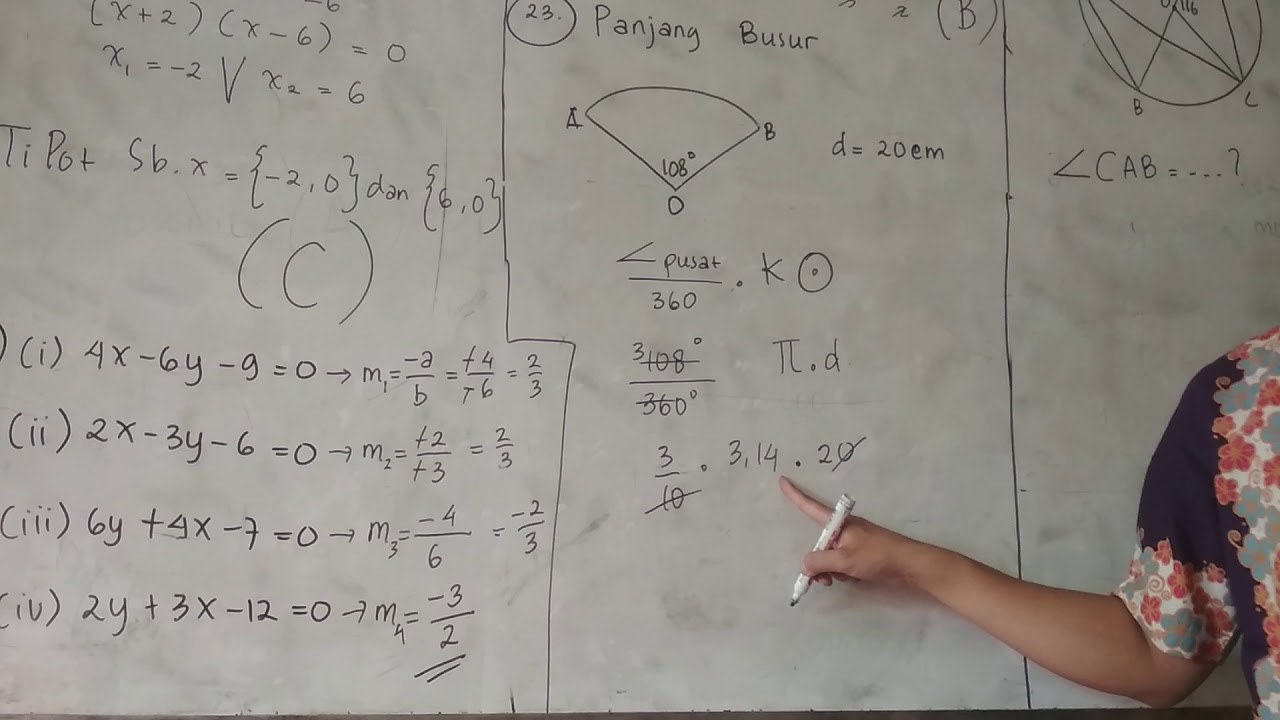 -6
(x+2) (x-6) = 0
x₁ = -2 V x₂ = 6
Ti Pot Sb. x = {-2, 0} dan {6, 0}
(C)
(i) 4x - 6y - 9 = 0 → m₁ = -a/b = +4/+6 = 2/3
(ii) 2x - 3y - 6 = 0 → m₂ = +2/+3 = 2/3
(iii) 6y + 4x - 7 = 0 → m₃ = -4/6 = -2/3
(iv) 2y + 3x - 12 = 0 → m₄ = -3/2
(B)
23. Panjang Busur
A
B
108°
O
d = 20 cm
∠ pusat/360 . K ⊙
3 108°/360° π . d
3/10 . 3,14 . 20
116
B
C
∠CAB = ...?